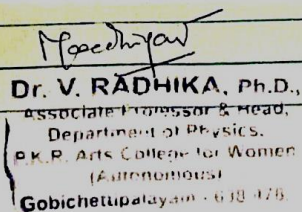 Dr. V. RADHIKA, Ph.D.,
Associate Professor & Head,
Department of Physics.
P.K.R. Arts College for Women
(Autonomous)
Gobichettipalayam - 638 476.